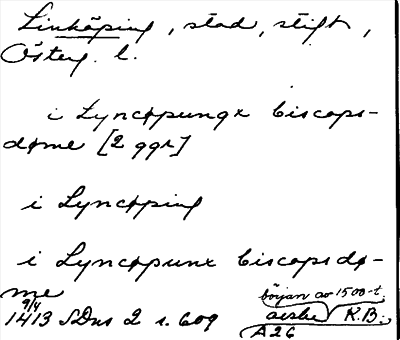 Linköping, stad, stift,
Österg. l.
i Lyncøpungx biscops-
døme [2 ggr]
i Lyncøping
i Lyncøpunx biscopsdø-
me
9/4
1413 SDns 2 s. 609
början av 1500-t.
avskr. R.B.
A 26